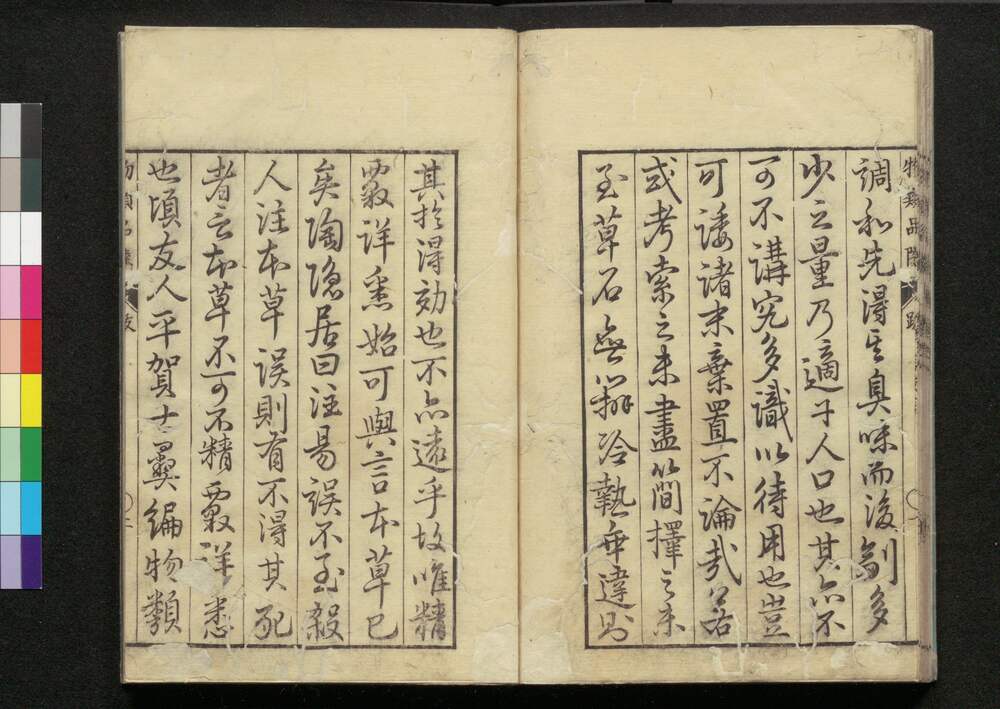 調和先得其臭味而後劑多
少之量乃適于人口也其亦不
可不講究多識以待用也豈
可諉諸末棄置不論哉若
或考索之未盡簡擇之未
至草石無辨冷熱乖違則
其於得効也不亦遠乎故唯精
覈詳悉始可與言本草已
矣陶隠居曰注易誤不至殺
人注本草誤則有不得其死
者云本草不可不精覈詳悉
也頃友人平賀士彛編物類